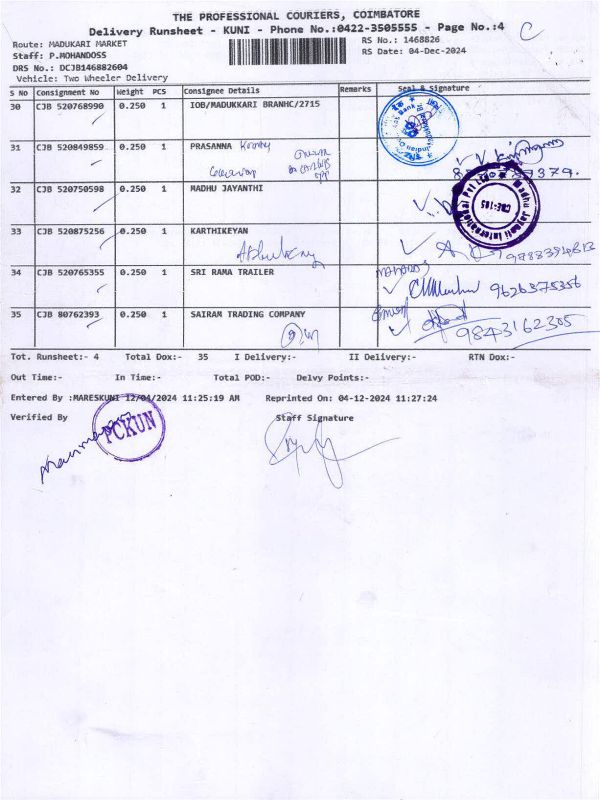 THE PROFESSIONAL COURIERS, COIMBATORE
Delivery Runsheet - KUNI - Phone No.:0422-3505555 - Page No.:4 C
Route: MADUKARI MARKET
RS No.: 1468826
Staff: P.MOHANDOSS
RS Date: 04-Dec-2024
DRS No.: DCJB146882604
Vehicle: Two Wheeler Delivery
S No Consignment No Weight PCS Consignee Details Remarks Seal & Signature
30 CJB 520768990 0.250 1 IOB/MADUKKARI BRANHC/2715
31 CJB 520849859 0.250 1 PRASANNA
32 CJB 520750598 0.250 1 MADHU JAYANTHI
Madhu Jayanti International Pvt Ltd
CBE-105
33 CJB 520875256 0.250 1 KARTHIKEYAN
34 CJB 520765355 0.250 1 SRI RAMA TRAILER
9626375356
35 CJB 80762393 0.250 1 SAIRAM TRADING COMPANY
9843162305
Tot. Runsheet:- 4 Total Dox:- 35 I Delivery:- II Delivery:- RTN Dox:-
Out Time:- In Time:- Total POD:- Delvy Points:-
Entered By :MARESKUNI 12/04/2024 11:25:19 AM Reprinted On: 04-12-2024 11:27:24
Verified By Staff Signature
PCKUN